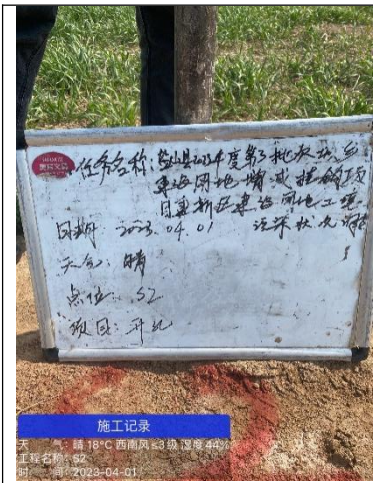 任务名称:蒙山县2023年度第3批次城乡
建设用地增减挂钩项
目建新区建设用地土壤
日期:2023.04.01 污染状况调查
天气:晴
点位:S2
项目:开孔
施工记录
天 气:晴 18°C 西南风≤3级 湿度 44%
工程名称:S2
时 间:2023-04-01